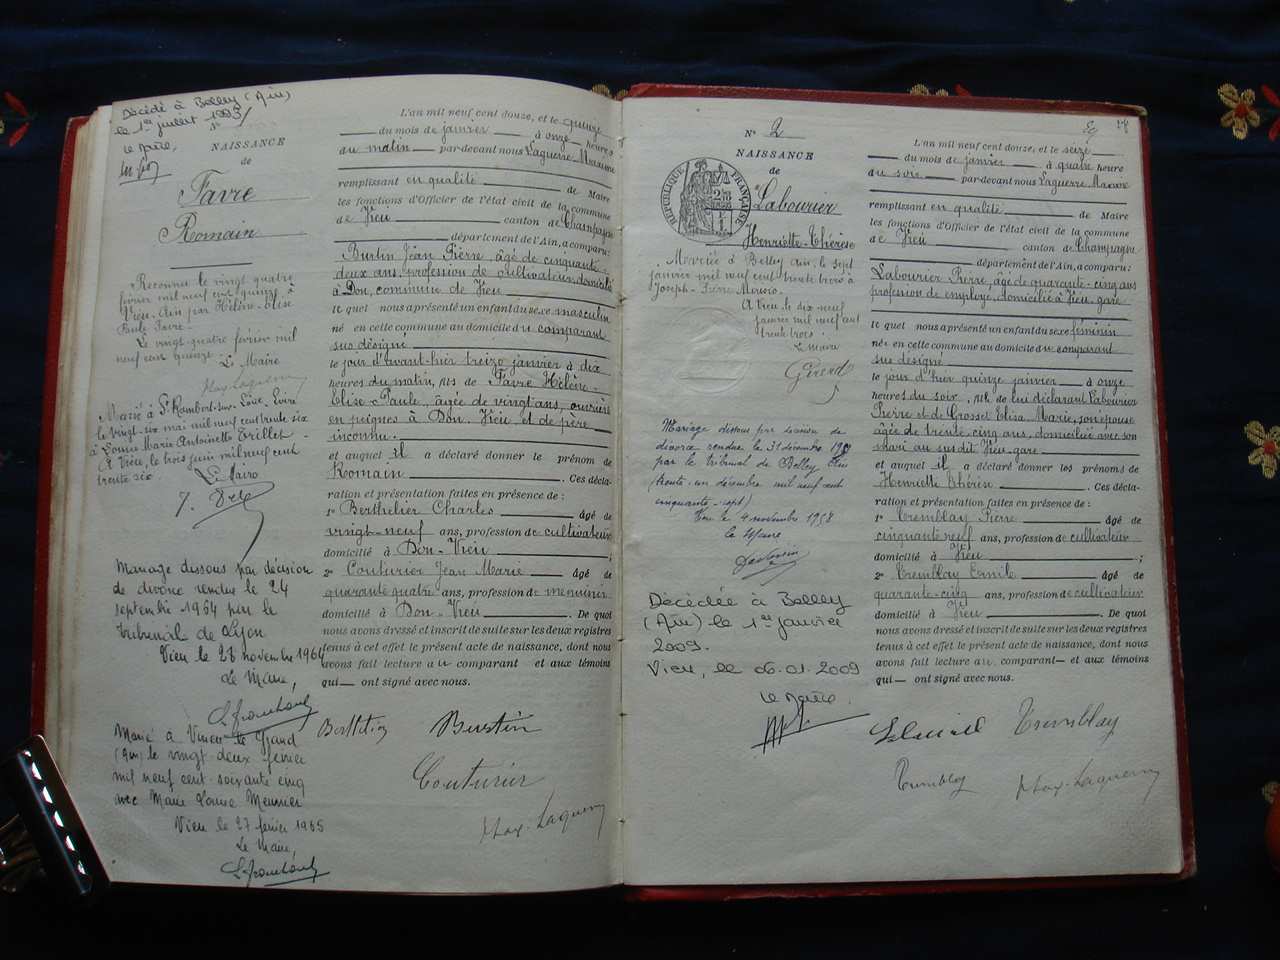 Décédé à Belley (Ain)
le 1er juillet 1993
le Maire,
NAISSANCE
de
Favre
Romain
Reconnu le vingt quatre
février mil neuf cent quinze à
Vieu Ain par Hélène Elise
Paule Favre.
Le vingt quatre février mil
neuf cent quinze.
Le Maire
Max Laguerre
Marié à St Rambert-sur-Loire, Loire
le vingt-six mai mil neuf cent trente six
à Louise Marie Antoinette Trillet
A Vieu, le trois juin mil neuf cent
trente six
Le Maire
Mariage dissous par décision
de divorce rendue le 24
septembre 1964 par le
Tribunal de Lyon
Vieu le 28 novembre 1964
Le Maire,
Marié à Virieu-le-Grand
(Ain) le vingt deux février
mil neuf cent soixante cinq
avec Marie Louise Meunier
Vieu le 27 février 1965
Le Maire,
L'an mil neuf cent douze, et le quinze
du mois de janvier à onze heures
du matin par-devant nous Laguerre Maxime
remplissant en qualité de Maire
les fonctions d'Officier de l'état civil de la commune
de Vieu canton de Champagne
département de l'Ain, a comparu:
Burtin Jean Pierre, âgé de cinquante-
deux ans, profession de cultivateur, domicilié
à Don, commune de Vieu
lequel nous a présenté un enfant du sexe masculin
né en cette commune au domicile du comparant
sus désigné
le jour d'avant-hier treize janvier à dix
heures du matin, fils de Favre Hélène-
Elise-Paule, âgée de vingt ans, ouvrière
en peignes à Don-Vieu et de père
inconnu.
et auquel il a déclaré donner le prénom de
Romain. Ces décla-
ration et présentation faites en présence de :
1º Berthelier Charles âgé de
vingt-neuf ans, profession de cultivateur
domicilié à Don-Vieu ;
2º Couturier Jean Marie âgé de
quarante quatre ans, profession de menuisier
domicilié à Don-Vieu. De quoi
nous avons dressé et inscrit de suite sur les deux registres
tenus à cet effet le présent acte de naissance, dont nous
avons fait lecture au comparant et aux témoins
qui ont signé avec nous.
Burtin
Couturier
Max Laguerre
Nº 2
NAISSANCE
de
RÉPUBLIQUE FRANÇAISE
Labourier
Henriette-Thérèse
Mariée à Belley Ain, le sept
janvier mil neuf cent trente trois à
Joseph-Pierre
A Vieu, le dix neuf
janvier mil neuf cent
trente trois.
Le Maire
Girerd
Mariage dissous par décision de
divorce rendue le 31 décembre 1957
par le tribunal de Belley Ain
(trente un décembre mil neuf cent
cinquante-sept)
Vieu le 4 novembre 1958
le Maire
Décédée à Belley
(Ain) le 1er janvier
2009.
Vieu, le 06.01.2009
le Maire.
L'an mil neuf cent douze, et le seize
du mois de janvier à quatre heures
du soir par-devant nous Laguerre Maxime
remplissant en qualité de Maire
les fonctions d'Officier de l'état civil de la commune
de Vieu canton de Champagne
département de l'Ain, a comparu:
Labourier Pierre, âgé de quarante-cinq ans
profession de employé, domicilié à Vieu-gare
lequel nous a présenté un enfant du sexe féminin
née en cette commune au domicile du comparant
sus désigné
le jour d'hier quinze janvier à onze
heures du soir, fille de lui déclarant Labourier
Pierre et de Crosset Elisa Marie, son épouse
âgée de trente-cinq ans, domiciliée avec son
mari au susdit Vieu-gare
et auquel il a déclaré donner les prénoms de
Henriette Thérèse. Ces décla-
ration et présentation faites en présence de :
1º Tremblay Pierre âgé de
cinquante neuf ans, profession de cultivateur
domicilié à Vieu ;
2º Tremblay Emile âgé de
quarante-cinq ans, profession de cultivateur
domicilié à Vieu. De quoi
nous avons dressé et inscrit de suite sur les deux registres
tenus à cet effet le présent acte de naissance, dont nous
avons fait lecture au comparant et aux témoins
qui ont signé avec nous.
Tremblay
Tremblay
Max Laguerre